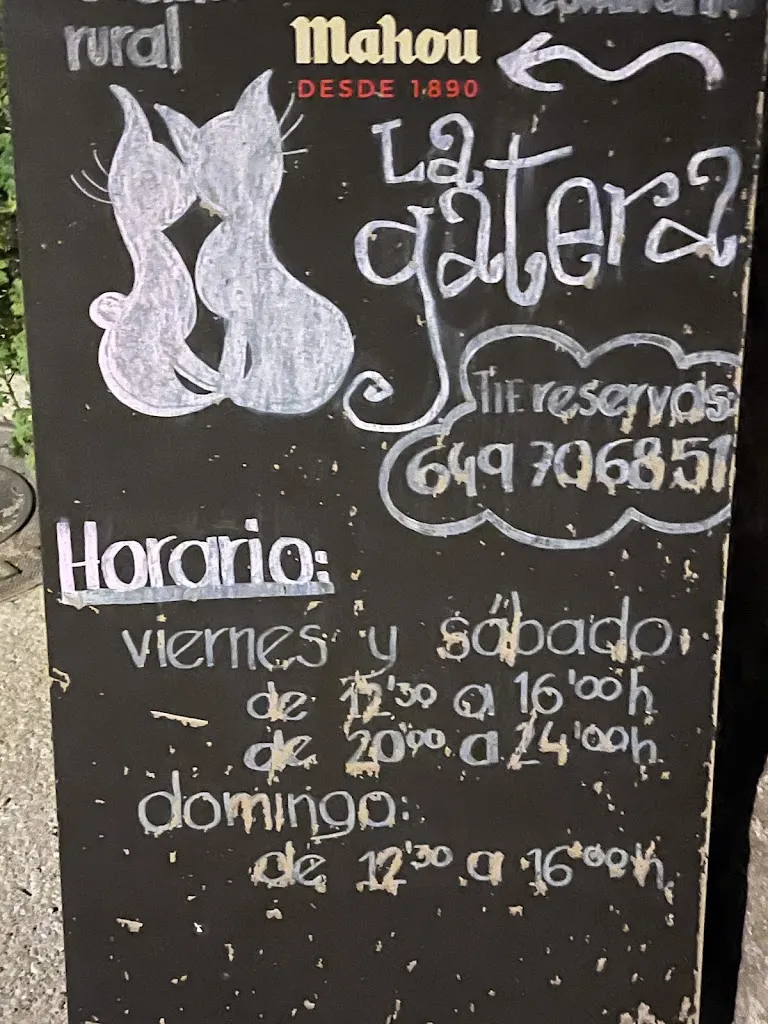 rural
Mahou
DESDE 1890
La
gatera
Tlf reservas:
649 706851
Horario:
viernes y sábado
de 12'30 a 16'00h
de 20'00 a 24'00h
domingo:
de 12'30 a 16'00h